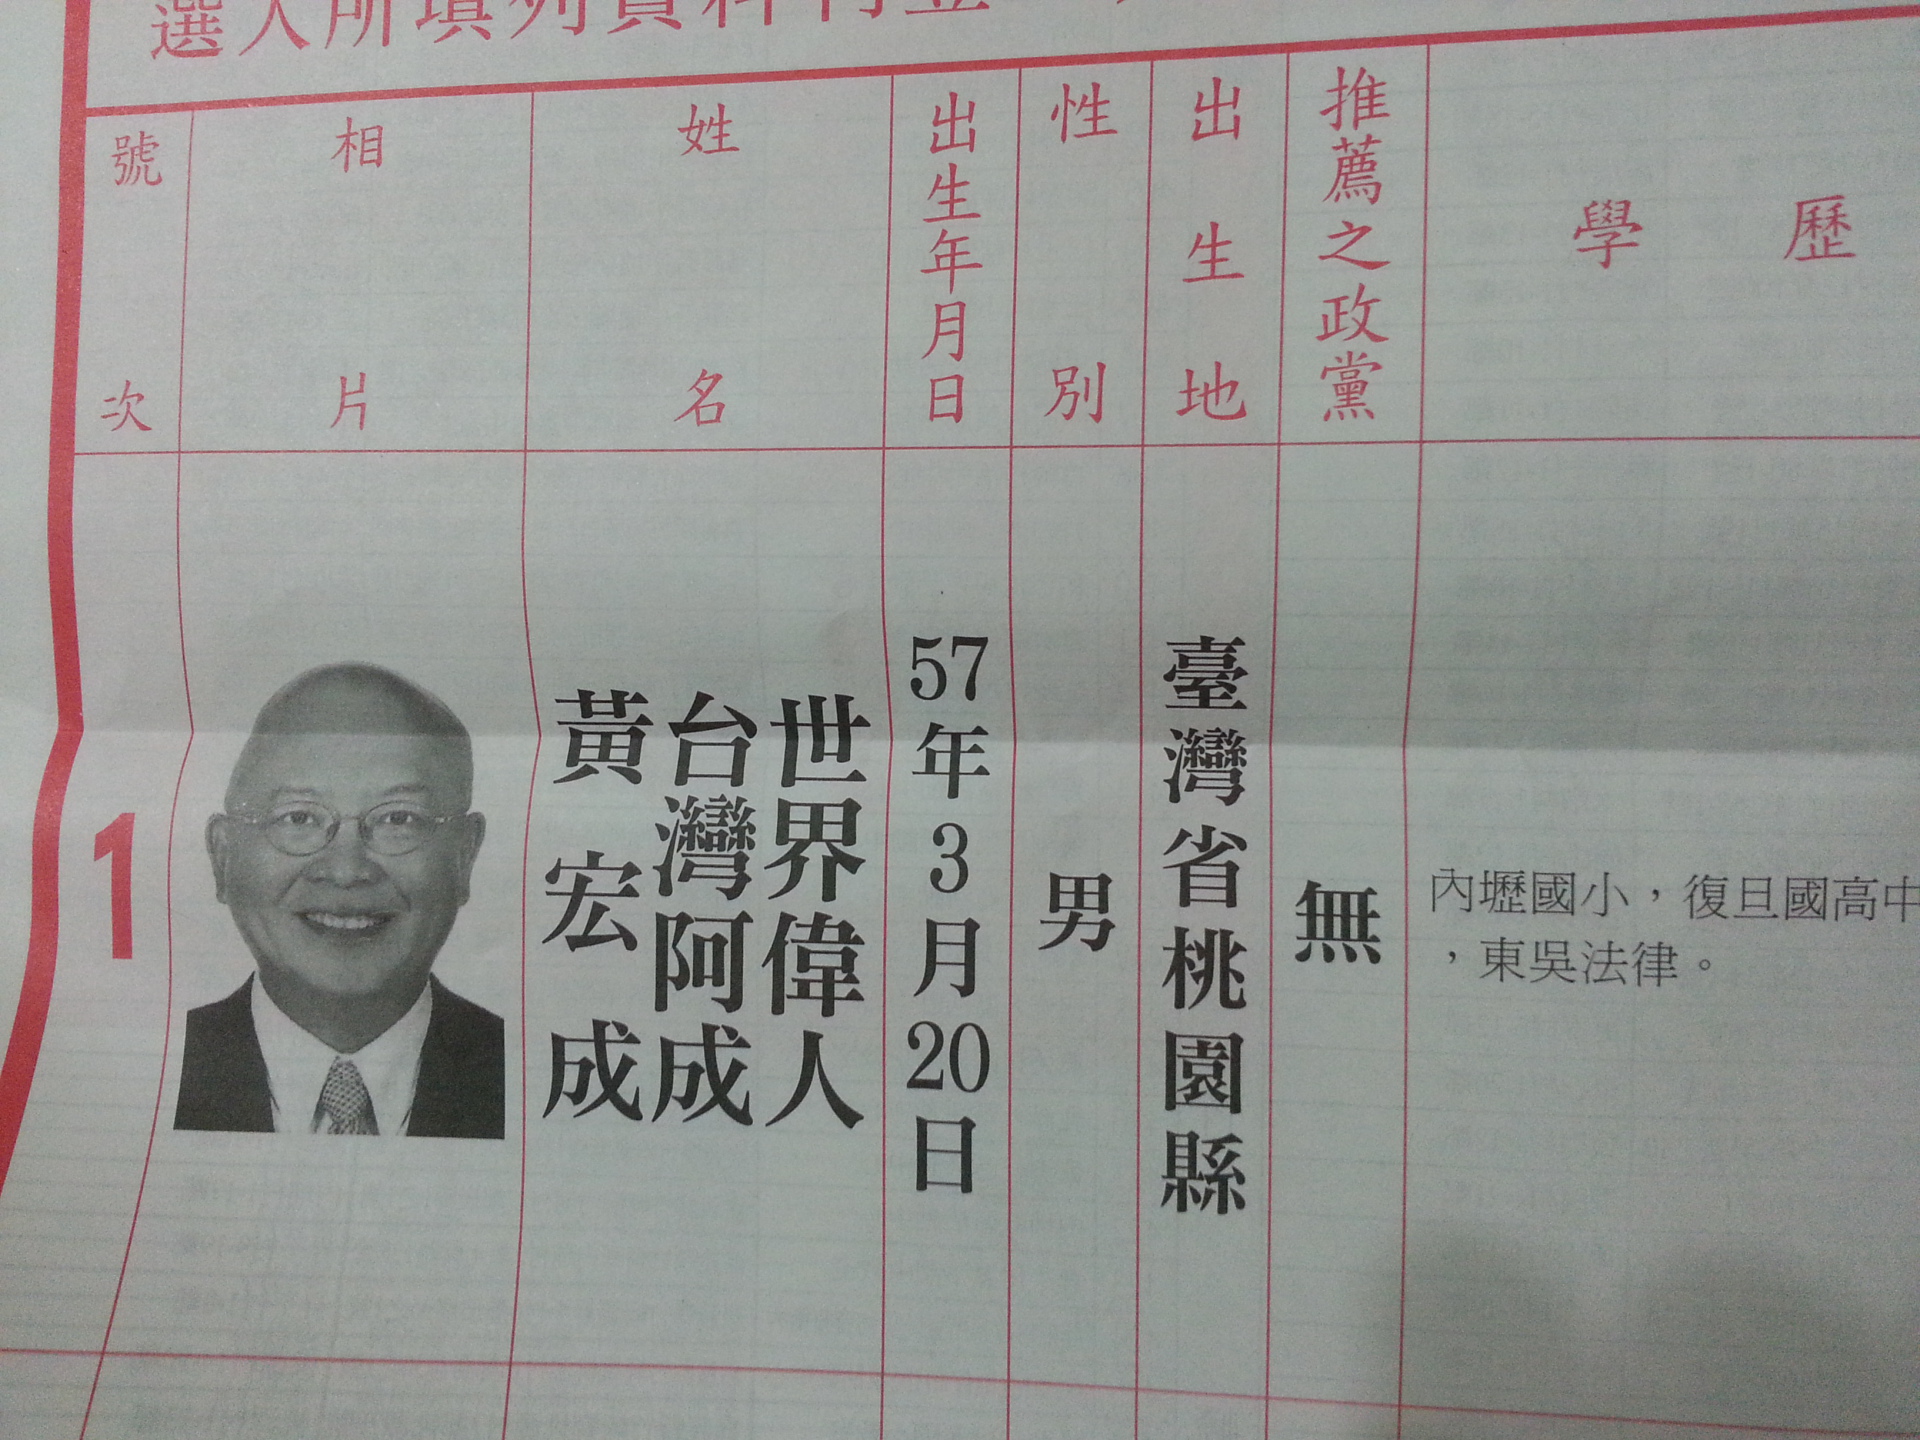 選人所填列資料刊登
號次
相片
姓名
出生年月日
性別
出生地
推薦之政黨
學歷
1
世界偉人
台灣阿成
黃宏成
57年3月20日
男
臺灣省桃園縣
無
內壢國小，復旦國高中
，東吳法律。